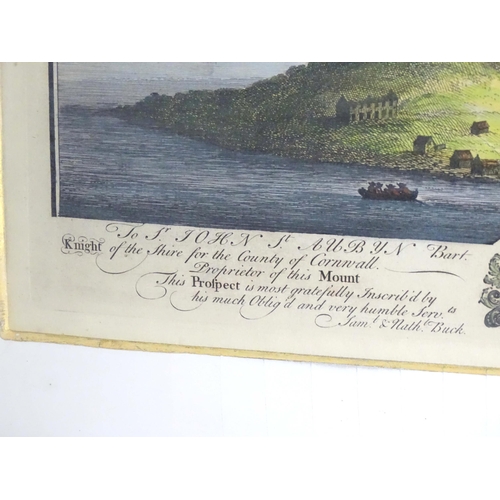 To Sr. IOHN St. AUBYN Bart.
Knight of the Shire for the County of Cornwall.
Proprietor of this Mount
This Proſpect is most gratefully Inscrib'd by
his much Oblig'd and very humble Serv.ts
Sam.l & Nath.l Buck.